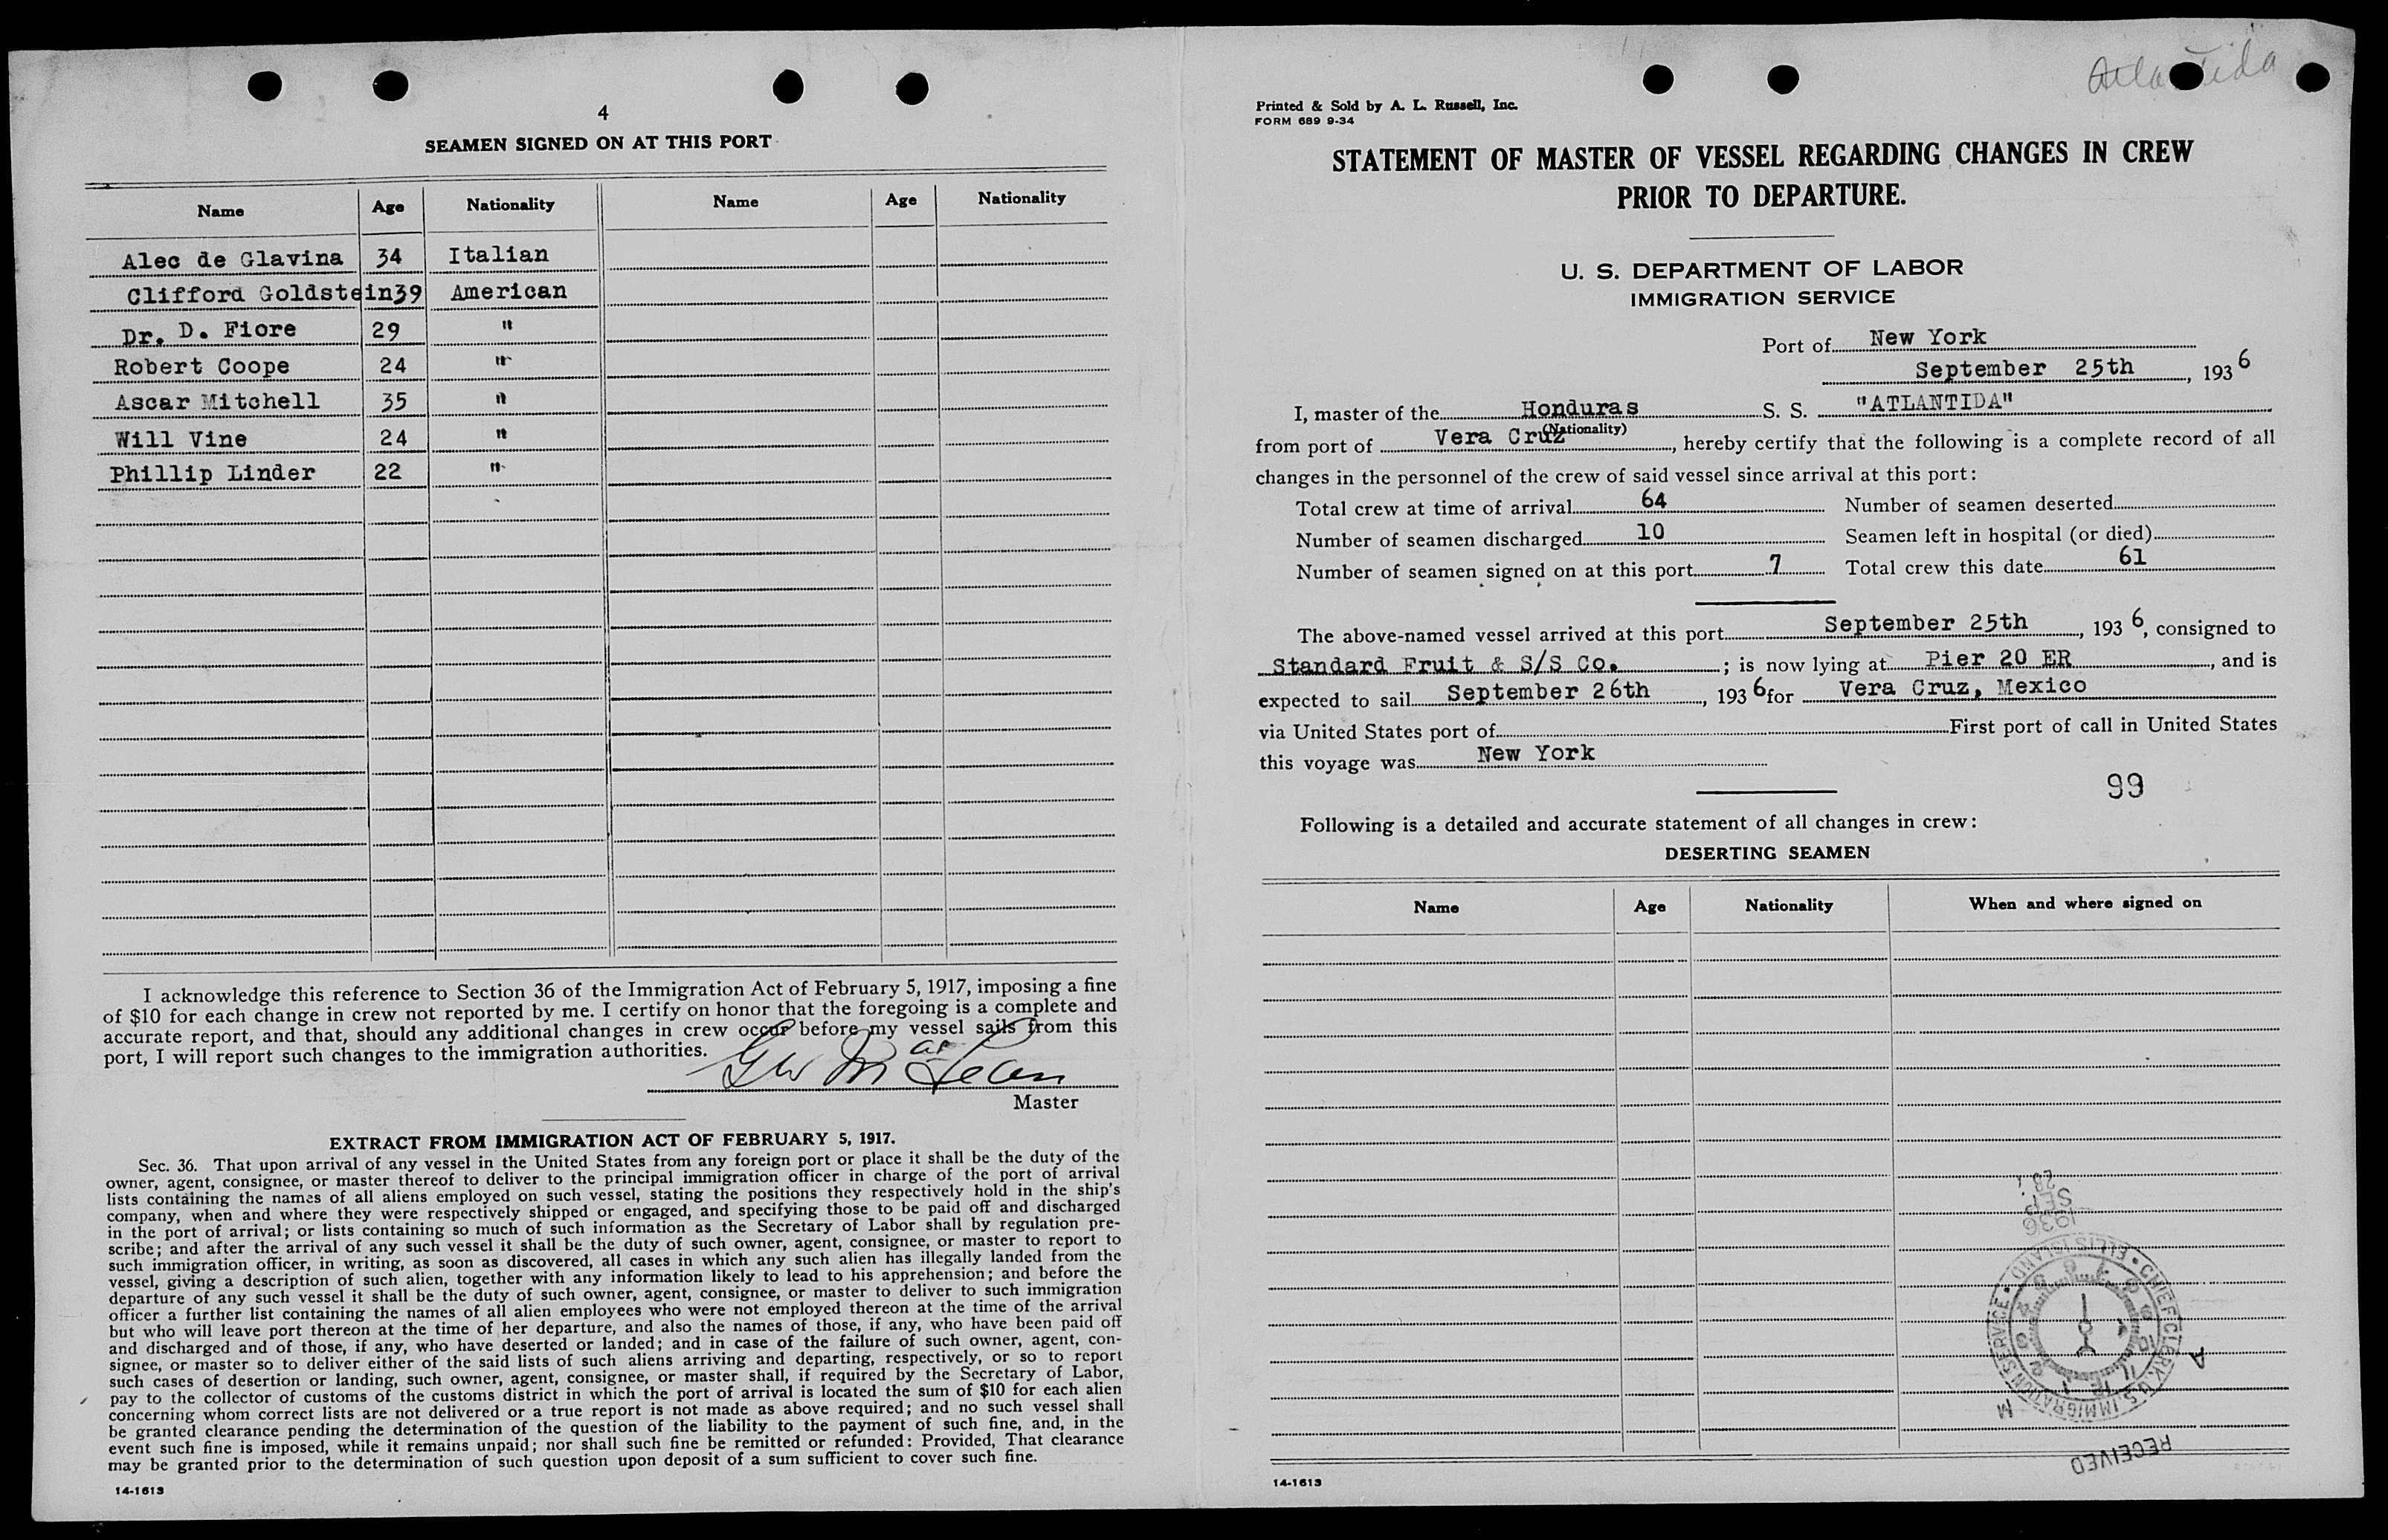 4
SEAMEN SIGNED ON AT THIS PORT
Name Age Nationality Name Age Nationality
Alec de Glavina 34 Italian
Clifford Goldstein39 American
Dr. D. Fiore 29 "
Robert Coope 24 "
Ascar Mitchell 35 "
Will Vine 24 "
Phillip Linder 22 "
I acknowledge this reference to Section 36 of the Immigration Act of February 5, 1917, imposing a fine
of $10 for each change in crew not reported by me. I certify on honor that the foregoing is a complete and
accurate report, and that, should any additional changes in crew occur before my vessel sails from this
port, I will report such changes to the immigration authorities.
Master
EXTRACT FROM IMMIGRATION ACT OF FEBRUARY 5, 1917.
Sec. 36. That upon arrival of any vessel in the United States from any foreign port or place it shall be the duty of the
owner, agent, consignee, or master thereof to deliver to the principal immigration officer in charge of the port of arrival
lists containing the names of all aliens employed on such vessel, stating the positions they respectively hold in the ship's
company, when and where they were respectively shipped or engaged, and specifying those to be paid off and discharged
in the port of arrival; or lists containing so much of such information as the Secretary of Labor shall by regulation pre-
scribe; and after the arrival of any such vessel it shall be the duty of such owner, agent, consignee, or master to report to
such immigration officer, in writing, as soon as discovered, all cases in which any such alien has illegally landed from the
vessel, giving a description of such alien, together with any information likely to lead to his apprehension; and before the
departure of any such vessel it shall be the duty of such owner, agent, consignee, or master to deliver to such immigration
officer a further list containing the names of all alien employees who were not employed thereon at the time of the arrival
but who will leave port thereon at the time of her departure, and also the names of those, if any, who have been paid off
and discharged and of those, if any, who have deserted or landed; and in case of the failure of such owner, agent, con-
signee, or master so to deliver either of the said lists of such aliens arriving and departing, respectively, or so to report
such cases of desertion or landing, such owner, agent, consignee, or master shall, if required by the Secretary of Labor,
pay to the collector of customs of the customs district in which the port of arrival is located the sum of $10 for each alien
concerning whom correct lists are not delivered or a true report is not made as above required; and no such vessel shall
be granted clearance pending the determination of the question of the liability to the payment of such fine, and, in the
event such fine is imposed, while it remains unpaid; nor shall such fine be remitted or refunded: Provided, That clearance
may be granted prior to the determination of such question upon deposit of a sum sufficient to cover such fine.
14-1613
Atlantida
Printed & Sold by A. L. Russell, Inc.
FORM 689 9-34
STATEMENT OF MASTER OF VESSEL REGARDING CHANGES IN CREW
PRIOR TO DEPARTURE.
U. S. DEPARTMENT OF LABOR
IMMIGRATION SERVICE
Port of New York
September 25th, 1936
I, master of the Honduras S. S. "ATLANTIDA"
(Nationality)
from port of Vera Cruz, hereby certify that the following is a complete record of all
changes in the personnel of the crew of said vessel since arrival at this port:
Total crew at time of arrival 64 Number of seamen deserted
Number of seamen discharged 10 Seamen left in hospital (or died)
Number of seamen signed on at this port 7 Total crew this date 61
The above-named vessel arrived at this port September 25th, 1936, consigned to
Standard Fruit & S/S Co.; is now lying at Pier 20 ER, and is
expected to sail September 26th, 1936 for Vera Cruz, Mexico
via United States port of First port of call in United States
this voyage was New York
99
Following is a detailed and accurate statement of all changes in crew:
DESERTING SEAMEN
Name Age Nationality When and where signed on
1936
SEP
28
CHIEF CLERK, U.S. IMMIGRATION SERVICE • ELLIS ISLAND
A M
RECEIVED
14-1613